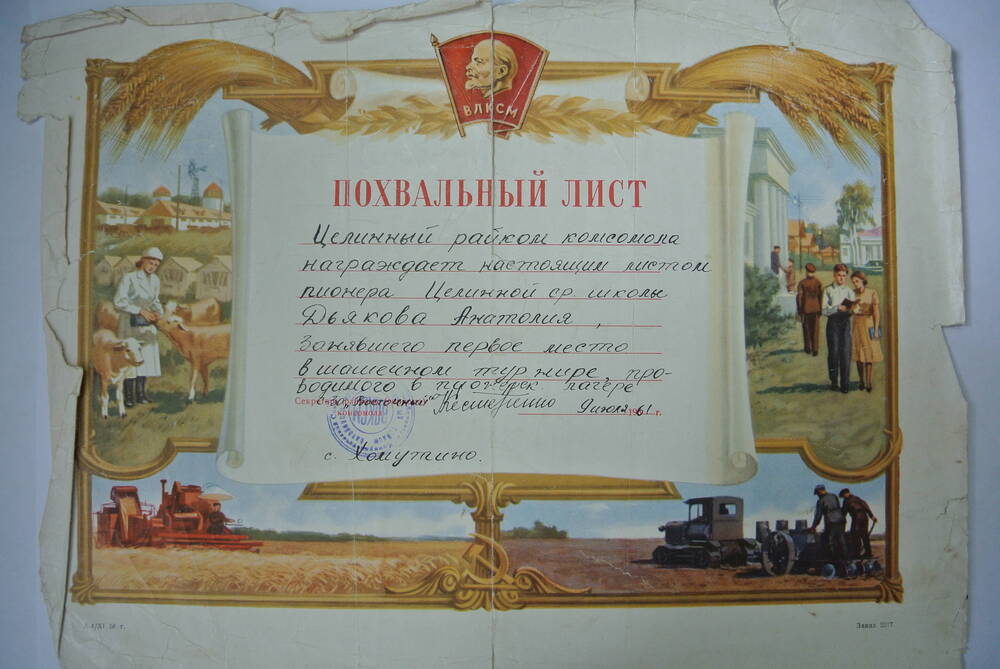 ВЛКСМ
ПОХВАЛЬНЫЙ ЛИСТ
Целинный райком комсомола
награждает настоящим листом
пионера Целинной ср. школы
Дьякова Анатолия,
Занявшего первое место
в шашечном турнире, про-
водимого в лагере
с-за "Восточный" Нестеренко 9 июля 1961 г.
Секретарь
комсомола
с. Хомутино.
56 г.
Заказ